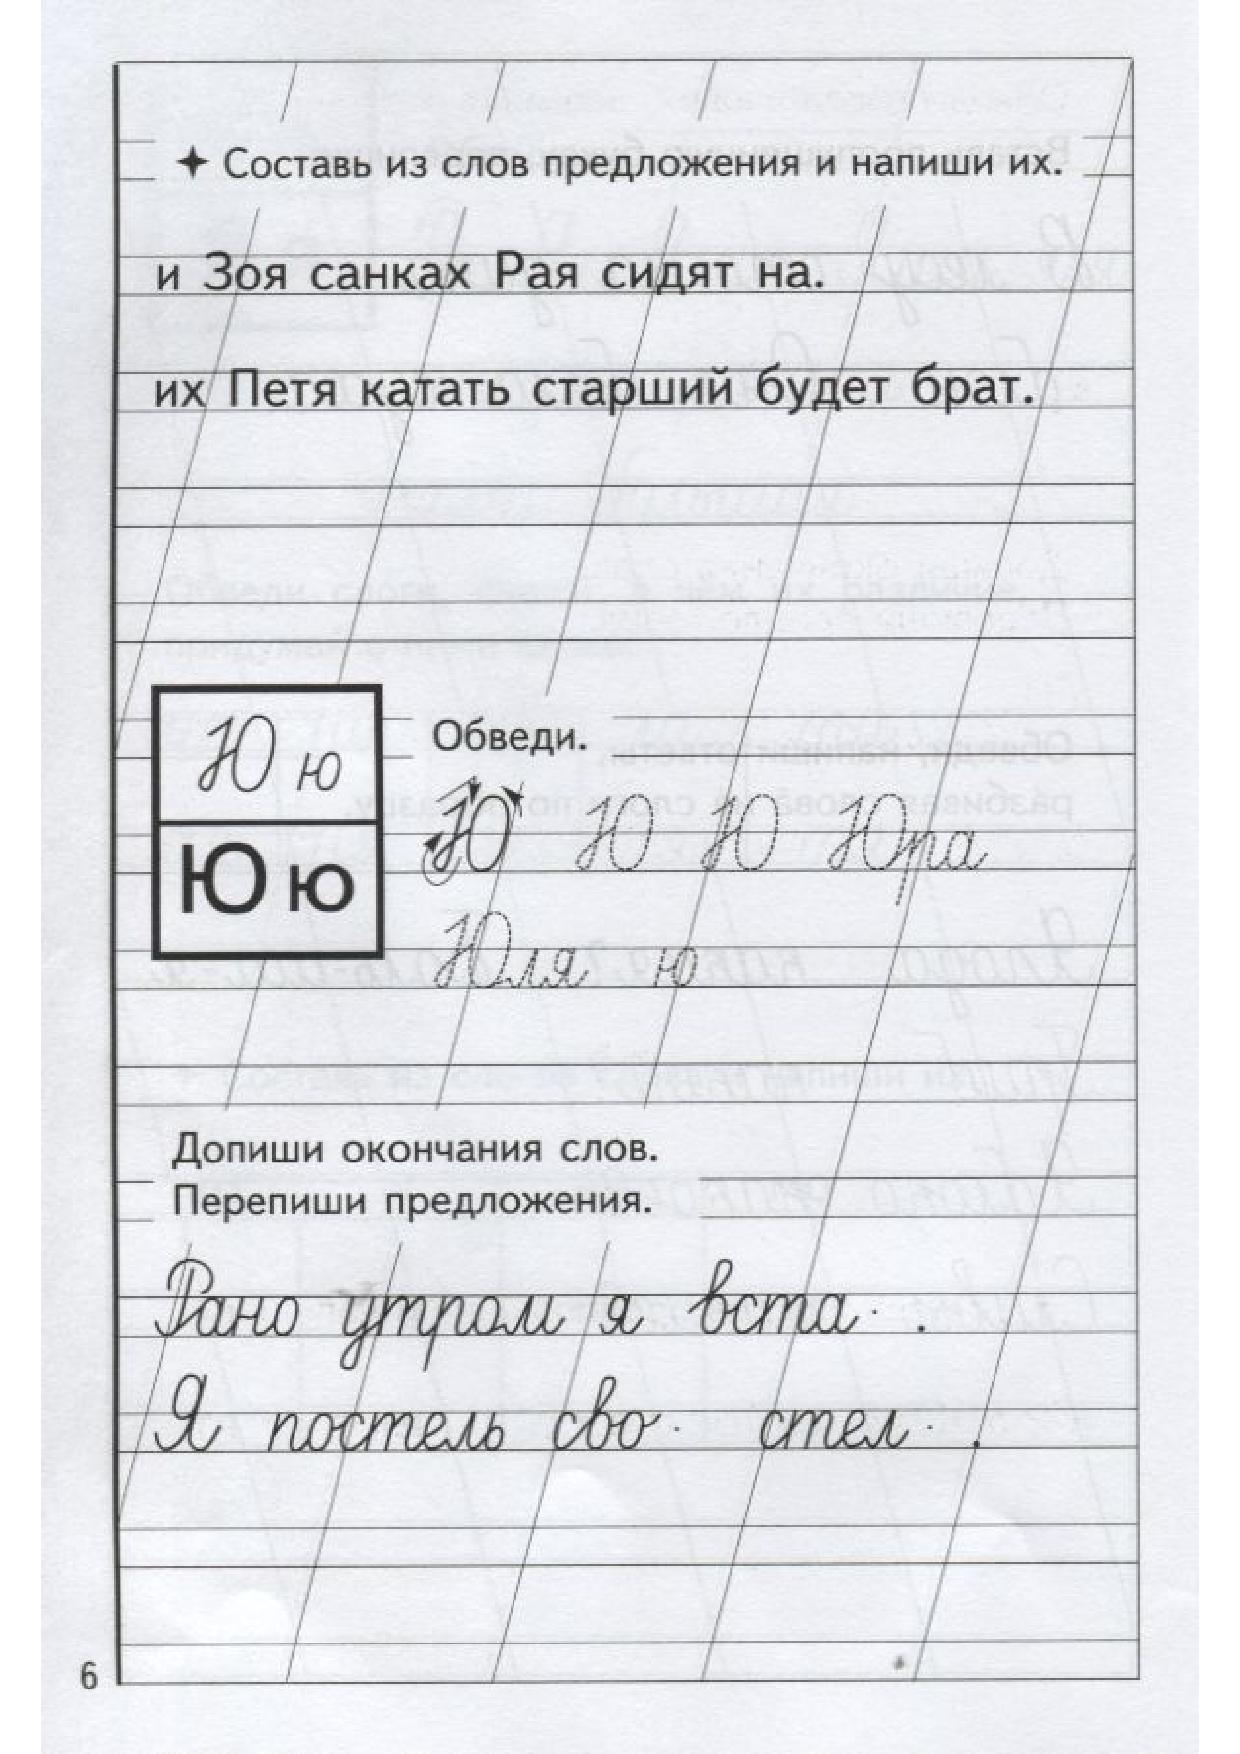 ✦ Составь из слов предложения и напиши их.
и Зоя санках Рая сидят на.
их Петя катать старший будет брат.
Ю ю
Ю ю
Обведи.
Ю Ю Ю Юра
Юля ю
Допиши окончания слов.
Перепиши предложения.
Рано утром я вста· .
Я постель сво· стел· .
6